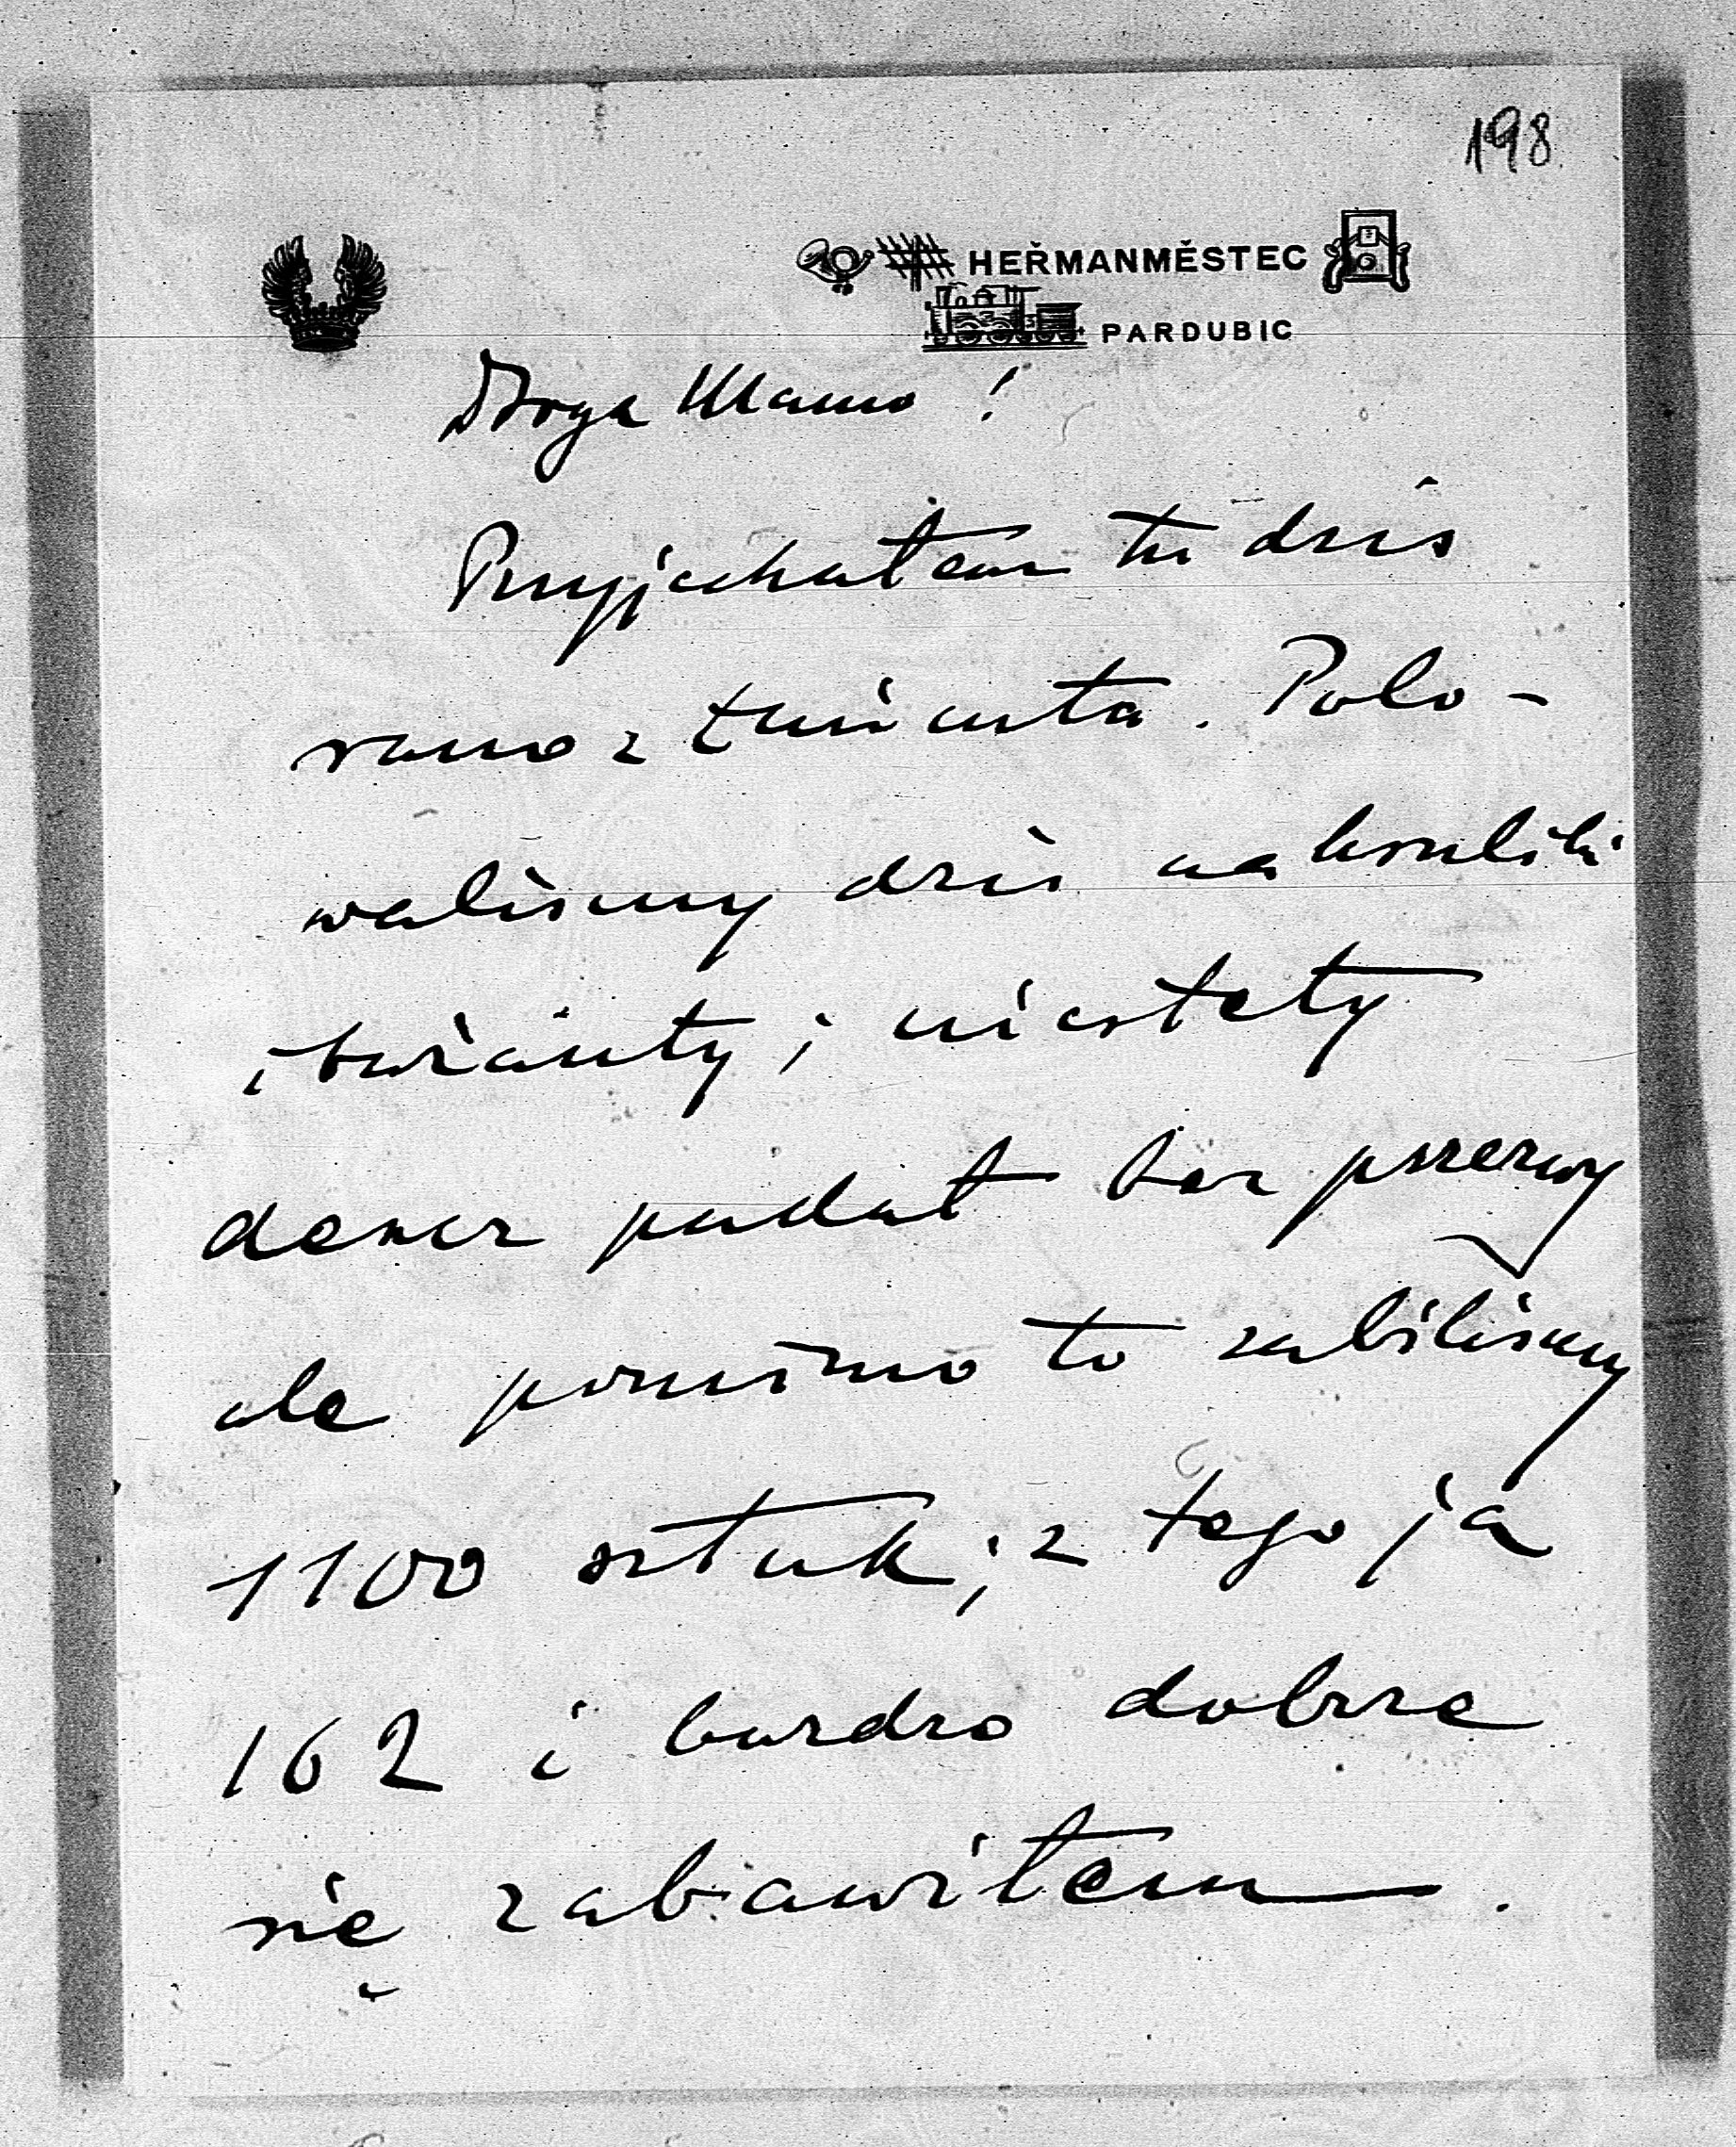 198
HEŘMANMĚSTEC
PARDUBIC
Droga Mamo!
Przyjechałem tu dziś
rano z Łańcuta. Polo-
waliśmy dziś na króliki
i bażanty; niestety
deszcz padał bez przerwy
ale pomimo to zabiliśmy
1100 sztuk; z tego ja
162 i bardzo dobrze
się zabawiłem.